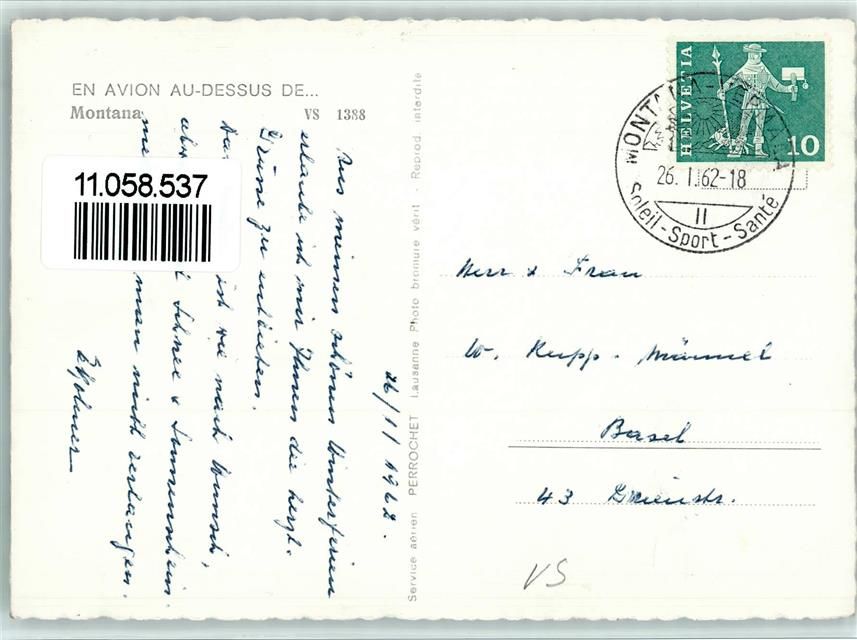 EN AVION AU-DESSUS DE...
Montana VS 1388
11.058.537
26/1/1962.
Aus meinen schönen Winterferien
erlaube ich mir Ihnen die herzl.
Grüsse zu entbieten.
ist wie nach Wunsch,
Schnee & Sonnenschein.
man nicht verlangen.
Service aérien PERROCHET Lausanne Photo bromure vérit - Reprod. interdite
HELVETIA
10
MONTANA-VERMALA
26. I. 62-18
II
Soleil-Sport-Santé
Herr & Frau
W. Kupp-
Basel
43
VS